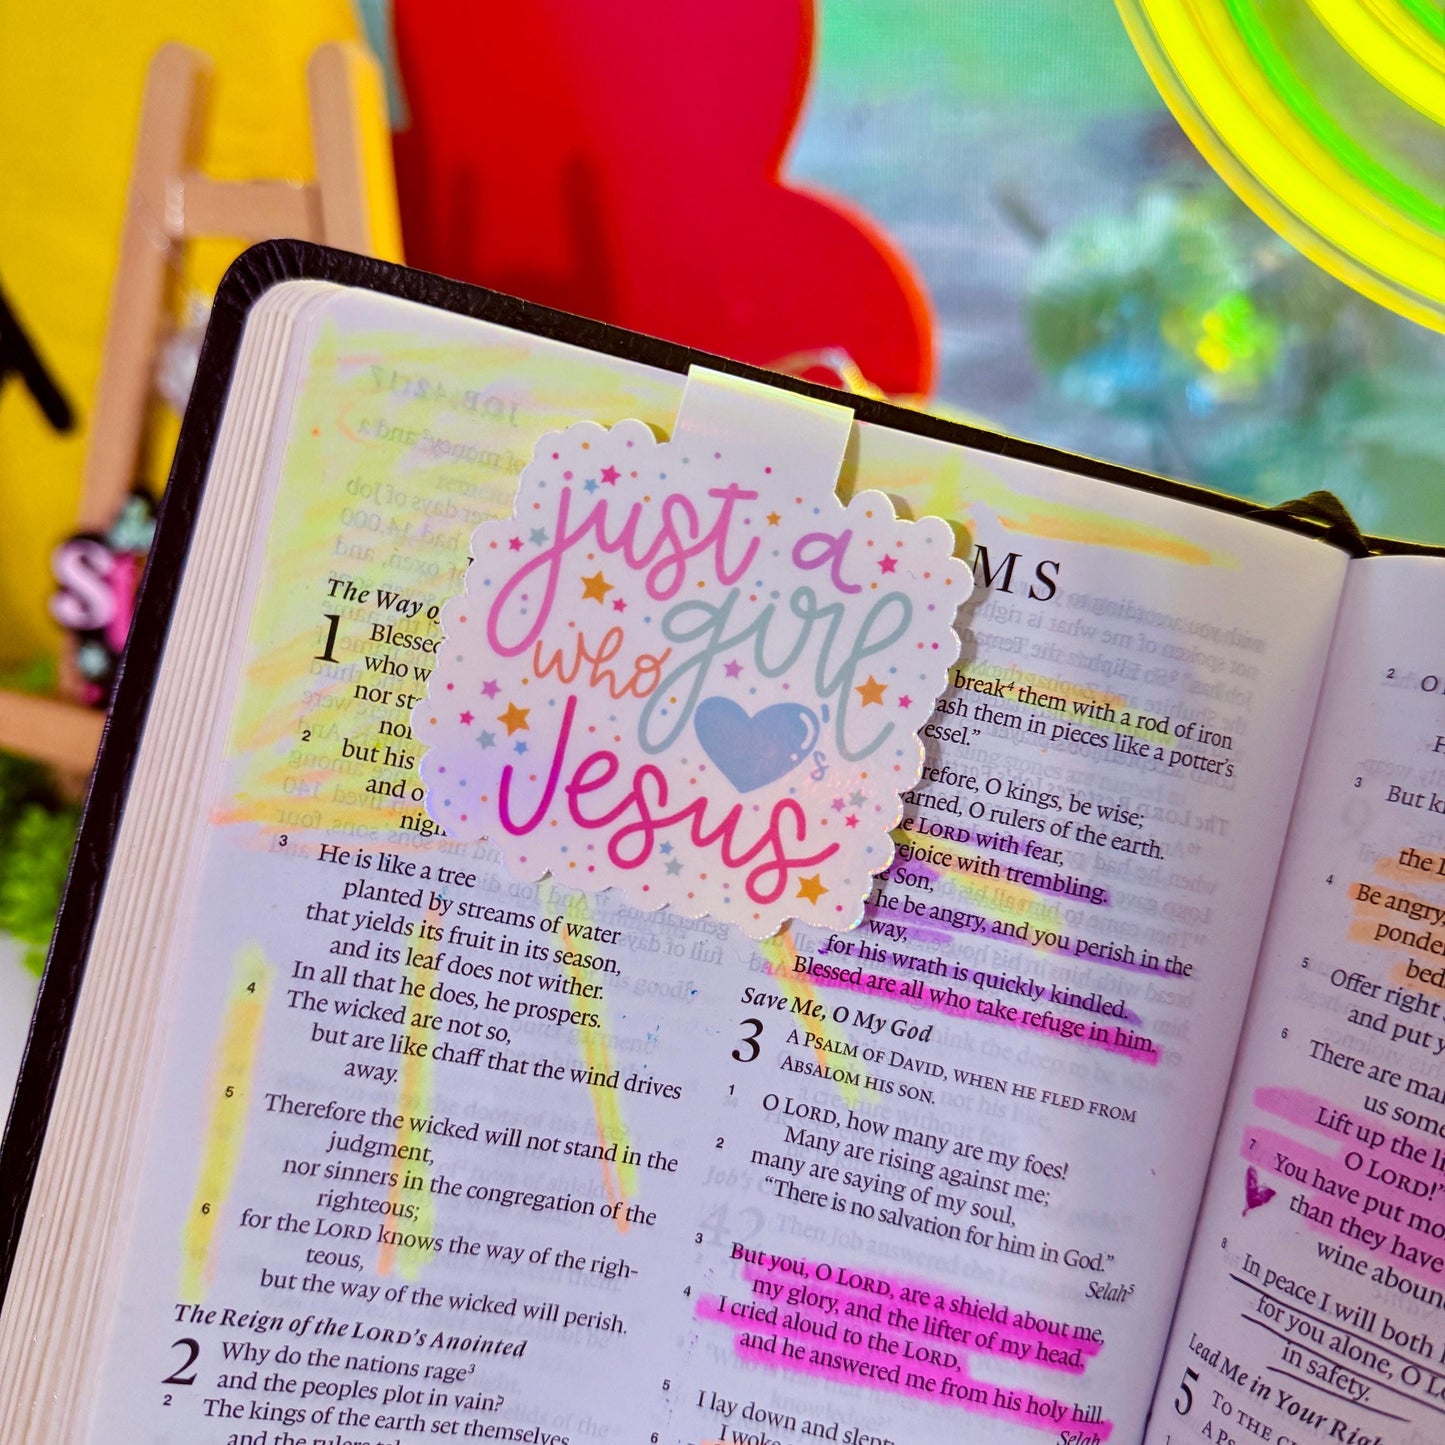 just a
girl
who
's
Jesus
MS
The Way o
1 Blessed
who w
nor st
nor
2 but his
and o
nigh
3 He is like a tree
planted by streams of water
that yields its fruit in its season,
and its leaf does not wither.
In all that he does, he prospers.
4 The wicked are not so,
but are like chaff that the wind drives
away.
5 Therefore the wicked will not stand in the
judgment,
nor sinners in the congregation of the
righteous;
6 for the LORD knows the way of the righ-
teous,
but the way of the wicked will perish.
The Reign of the LORD's Anointed
2 Why do the nations rage³
and the peoples plot in vain?
2 The kings of the earth set themselves
and the rulers
break⁴ them with a rod of iron
ash them in pieces like a potter's
essel.”
refore, O kings, be wise;
arned, O rulers of the earth.
e LORD with fear,
rejoice with trembling.
e Son,
he be angry, and you perish in the
way,
for his wrath is quickly kindled.
Blessed are all who take refuge in him.
Save Me, O My God
3 A PSALM OF DAVID, WHEN HE FLED FROM
ABSALOM HIS SON.
1 O LORD, how many are my foes!
Many are rising against me;
2 many are saying of my soul,
“There is no salvation for him in God.”
Selah⁵
3 But you, O LORD, are a shield about me,
my glory, and the lifter of my head.
4 I cried aloud to the LORD,
and he answered me from his holy hill.
Selah
5 I lay down and slept;
6 I woke
2 O
3 But k
the L
4 Be angry,
ponder
bed
5 Offer right
and put y
6 There are ma
us some
Lift up the li
O LORD!”
7 You have put mo
than they have
wine aboun
8 In peace I will both
for you alone, O L
in safety.
Lead Me in Your Righ
5 TO THE C
A PS